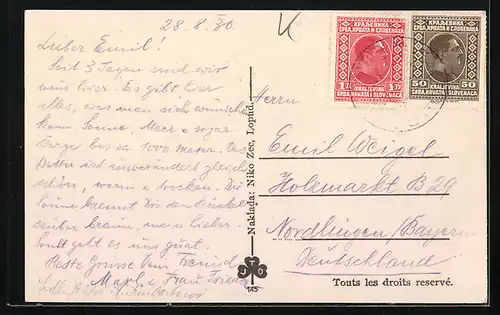 28.8.30
Lieber Emil!
Seit 3 Tagen sind wir
nun hier. Es gibt hier
alles, was man sich wünschen
kann. Sonne, Meer u. sogar
Berge bis ca 1000 meter. Das
Wetter ist unverändert gleich
schön, warm u. trocken. Die
Sonne brennt Dir den Buckel
sauber braun, mein Lieber.
Sonst geht es uns gut.
Beste Grüsse Dein Freund
u. Frau
Naklada: Niko Zec, Lopud.
145
КРАЉЕВИНА
СРБА, ХРВАТА И СЛОВЕНАЦА
1 Д 1 D
KRALJEVINA
SRBA, HRVATA I SLOVENACA
КРАЉЕВИНА
СРБА, ХРВАТА И СЛОВЕНАЦА
50 50
KRALJEVINA
SRBA, HRVATA I SLOVENACA
Herrn
Emil Weigel
Holzmarkt B 29
Nördlingen/Bayern
Deutschland
Touts les droits reservé.